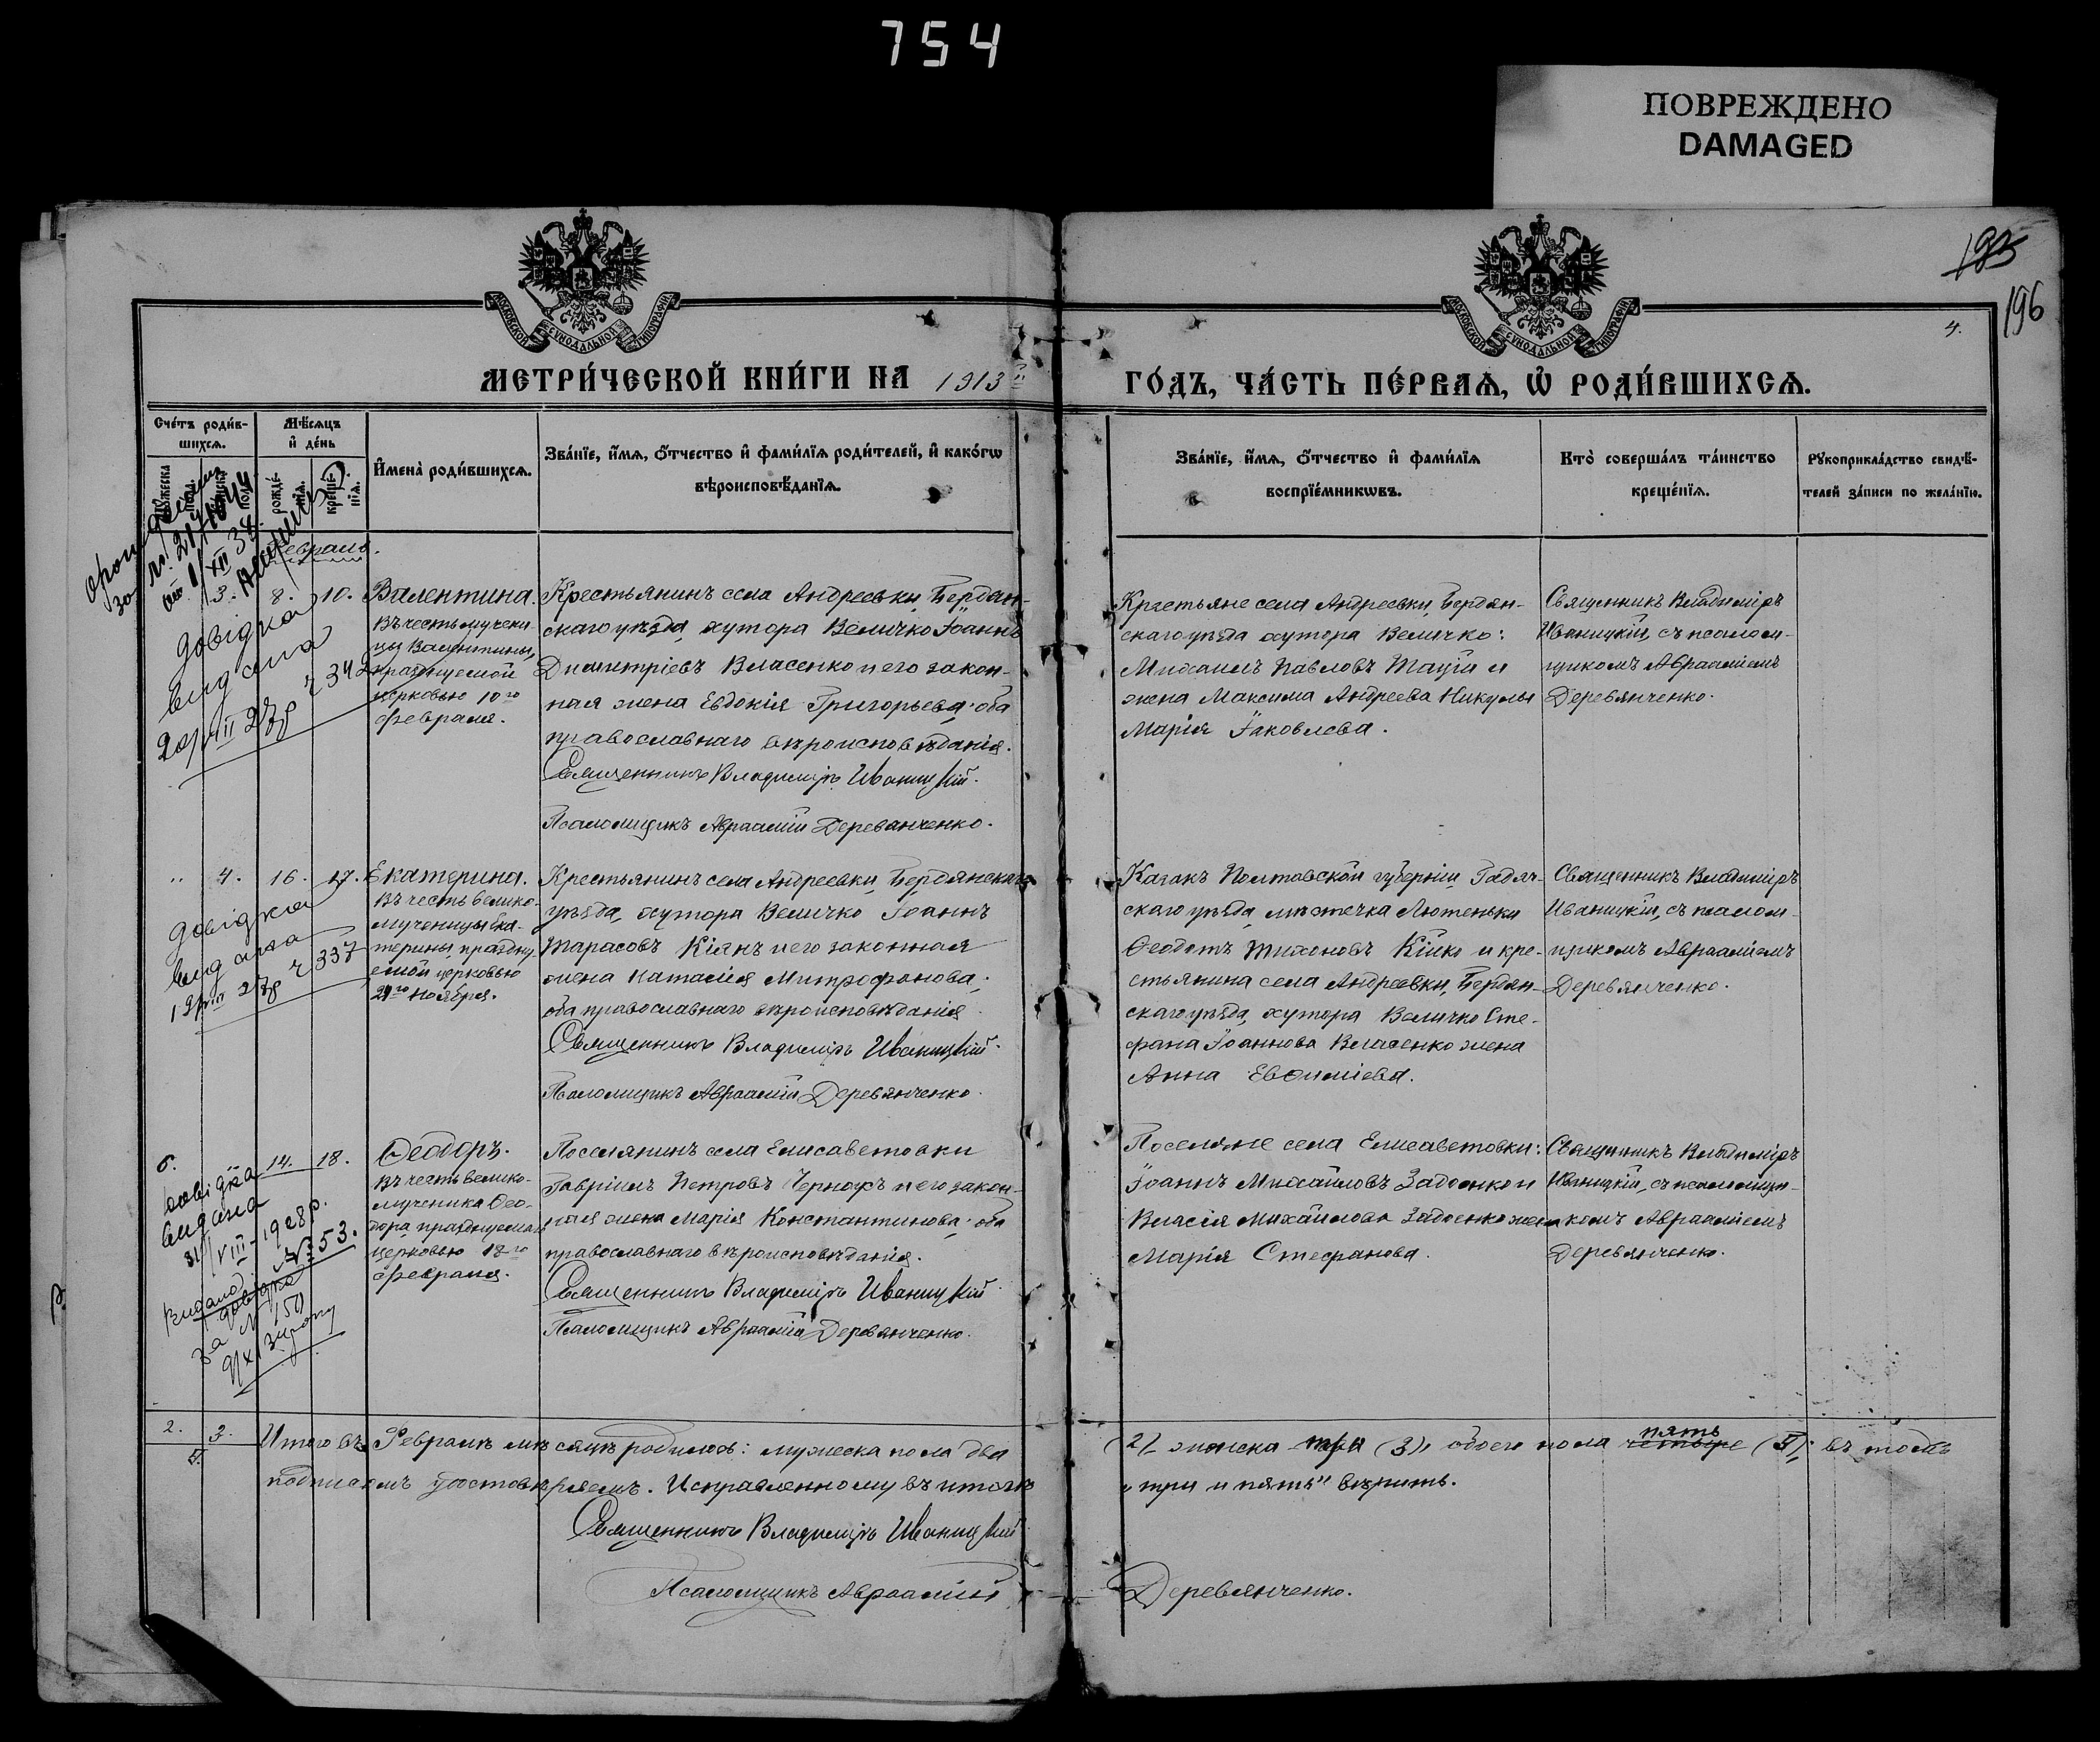 754
ПОВРЕЖДЕНО
DAMAGED
195
196
4.
МОСКОВСКОЙ СУНОДАЛЬНОЙ ТИПОГРАФІИ
МОСКОВСКОЙ СУНОДАЛЬНОЙ ТИПОГРАФІИ
МЕТРИ́ЧЕСКОЙ КНИ́ГИ НА 1913й
ГО́ДЪ, ЧА́СТЬ ПЕ́РВАѦ, Ѡ҆ РОДИ́ВШИХСѦ.
Сче́тъ роди́в-
шихсѧ.
Мѣ́сѧцъ
и҆ де́нь
рожде́-
нїѧ.
креще́-
нїѧ.
И҆мена̀ роди́вшихсѧ.
Зва́нїе, и҆́мѧ, ѻ҆́тчество и҆ фами́лїѧ роди́телей, и҆ како́гѡ
вѣроисповѣ́данїѧ.
Зва́нїе, и҆́мѧ, ѻ҆́тчество и҆ фами́лїѧ
воспрїе́мникѡвъ.
Кто̀ соверша́лъ та́инство
креще́нїѧ.
Рꙋкоприкла́дство свидѣ́-
телей за́писи по жела́нїю.
Февраль.
3. 8. 10.
Валентина.
Въ честь мучени-
цы Валентины,
празднуемой
церковью 10го
февраля.
Крестьянинъ села Андреевки, Бердян-
скаго уѣзда хутора Величко Іоаннъ
Димитріевъ Власенко и его закон-
ная жена Евдокія Григорьева; оба
православнаго вѣроисповѣданія.
Священникъ Владиміръ Иваницкій.
Псаломщикъ Авраамій Деревянченко.
Крестьяне села Андреевки, Бердян-
скаго уѣзда хутора Величко:
Михаилъ Павловъ Тацій и
жена Максима Андреева Никулы
Марія Іаковлева.
Священникъ Владиміръ
Иваницкій, съ псалом-
щикомъ Аврааміемъ
Деревянченко.
довідка
видана
ч 342
" 4. 16. 17.
Екатерина.
Въ честь велико-
мученицы Ека-
терины, праздну-
емой церковью
24го ноября.
Крестьянинъ села Андреевки, Бердянскаго
уѣзда, хутора Величко Іоаннъ
Тарасовъ Кіянъ и его законная
жена Наталія Митрофанова;
оба православнаго вѣроисповѣданія.
Священникъ Владиміръ Иваницкій.
Псаломщикъ Авраамій Деревянченко.
Казакъ Полтавской губерніи, Гадяч-
скаго уѣзда, мѣстечка Лютеньки
Ѳеодотъ Тихоновъ Кійко и кре-
стьянина села Андреевки, Бердян-
скаго уѣзда, хутора Величко Сте-
фана Іоаннова Власенко жена
Анна Евѳиміева.
Священникъ Владиміръ
Иваницкій, съ псалом-
щикомъ Аврааміемъ
Деревянченко.
довідка
видана
ч 337
14. 18.
Ѳеодоръ.
Въ честь велико-
мученика Ѳео-
дора, празднуемаго
церковью 18го
февраля.
Поселянинъ села Елисаветовки
Гавріилъ Петровъ Чернофъ и его закон-
ная жена Марія Константинова; оба
православнаго вѣроисповѣданія.
Священникъ Владиміръ Иваницкій.
Псаломщикъ Авраамій Деревянченко.
Поселяне села Елисаветовки:
Іоаннъ Михайловъ Задоенко и
Власія Михайлова Задоенко жена
Марія Стефанова.
Священникъ Владиміръ
Иваницкій, съ псаломщи-
комъ Аврааміемъ
Деревянченко.
довідка
видана
31/VIII-1928р.
№ 53.
довідка
за № 150
2. 3.
5.
Итого въ Февралѣ мѣсяцѣ родилось: мужеска пола два
(2), женска три (3), обоего пола четыре пять (5); въ томъ
подписомъ удостовѣряемъ. Исправленному въ итогѣ
"три и пять" вѣрить.
Священникъ Владиміръ Иваницкій
Псаломщикъ Авраамій
Деревянченко.